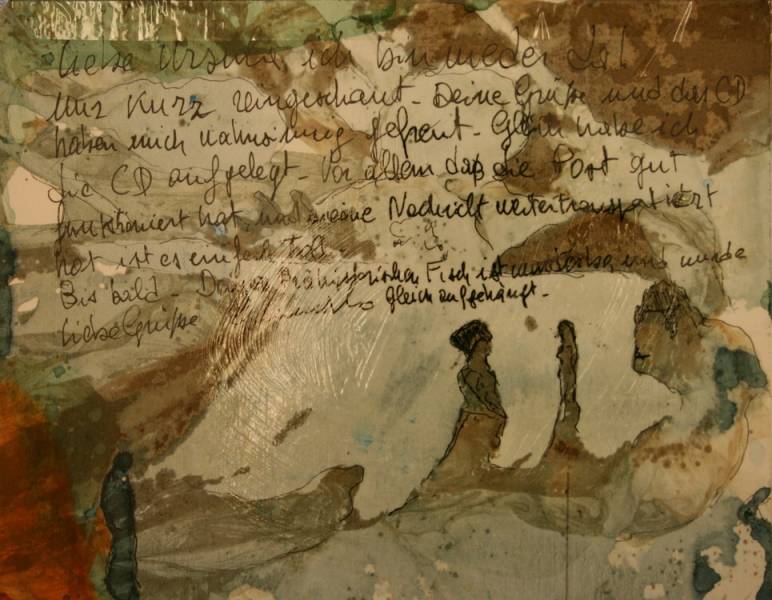 Liebe Ursula, ich bin wieder da!
Nur kurz reingeschaut - Deine Grüße und das CD
haben mich wahnsinnig gefreut - Gleich habe ich
die CD aufgelegt - Vor allem daß die Post gut
funktioniert hat und meine Nachricht weitertransportiert
hat ist es einfach toll -
Bis bald - Dein Prähistorischen Fisch ist und wurde
gleich aufgehängt -
liebe Grüße